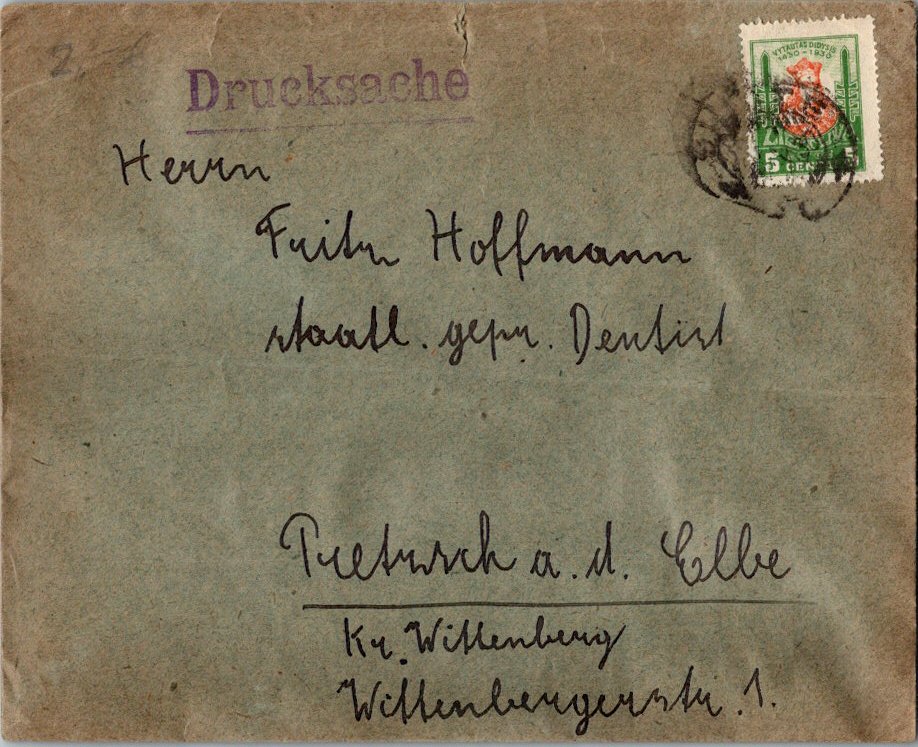 2.-
Drucksache
VYTAUTAS DIDYSIS
1430-1930
5 CENT 5
Herrn
Fritz Hoffmann
staatl. gepr. Dentist
Pretzsch a. d. Elbe
Kr. Wittenberg
Wittenbergerstr. 1.